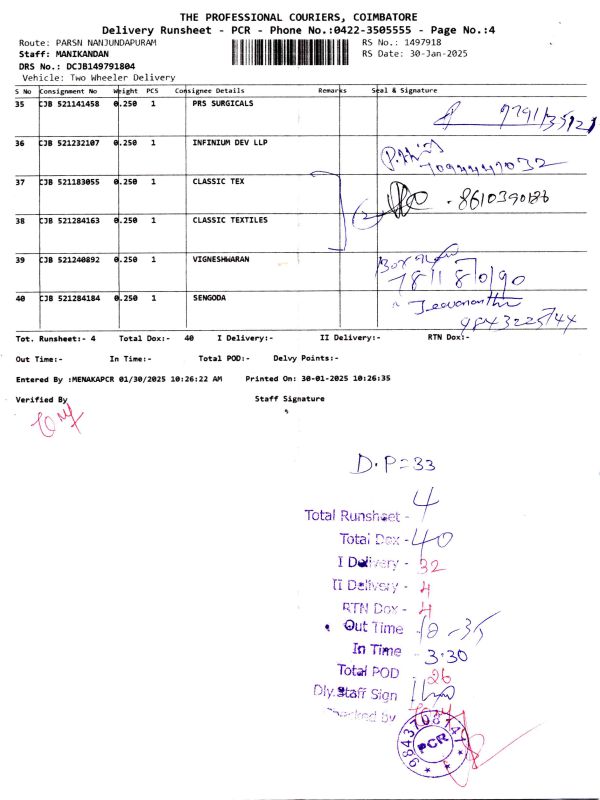 THE PROFESSIONAL COURIERS, COIMBATORE
Delivery Runsheet - PCR - Phone No.:0422-3505555 - Page No.:4
Route: PARSN NANJUNDAPURAM RS No.: 1497918
Staff: MANIKANDAN RS Date: 30-Jan-2025
DRS No.: DCJB149791804
Vehicle: Two Wheeler Delivery
S No Consignment No Weight PCS Consignee Details Remarks Seal & Signature
35 CJB 521141458 0.250 1 PRS SURGICALS
36 CJB 521232107 0.250 1 INFINIUM DEV LLP
37 CJB 521183055 0.250 1 CLASSIC TEX 8610390186
(2)
38 CJB 521284163 0.250 1 CLASSIC TEXTILES
39 CJB 521240892 0.250 1 VIGNESHWARAN
78118180190
40 CJB 521284184 0.250 1 SENGODA Jeevananthi
9843225744
Tot. Runsheet:- 4 Total Dox:- 40 I Delivery:- II Delivery:- RTN Dox:-
Out Time:- In Time:- Total POD:- Delvy Points:-
Entered By :MENAKAPCR 01/30/2025 10:26:22 AM Printed On: 30-01-2025 10:26:35
Verified By Staff Signature
D.P=33
Total Runsheet - 4
Total Dox - 40
I Delivery - 32
II Delivery - 4
RTN Dox - 4
Out Time - 10-35
In Time - 3.30
Total POD - 26
Dly.Staff Sign
Checked by
9843708147
PCR